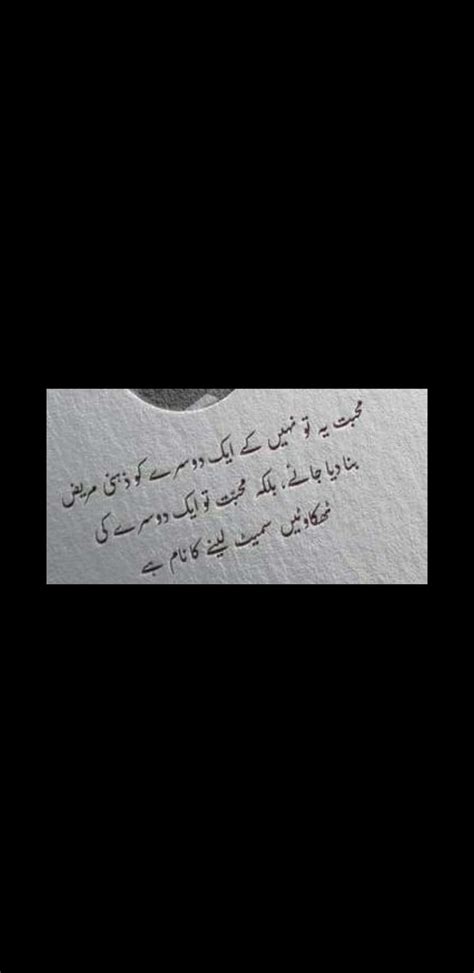 محبت یہ تو نہیں کے ایک دوسرے کو ذہنی مریض
بنا دیا جائے، بلکہ محبّت تو ایک دوسرے کی
تھکاوٹیں سمیٹ لینے کا نام ہے